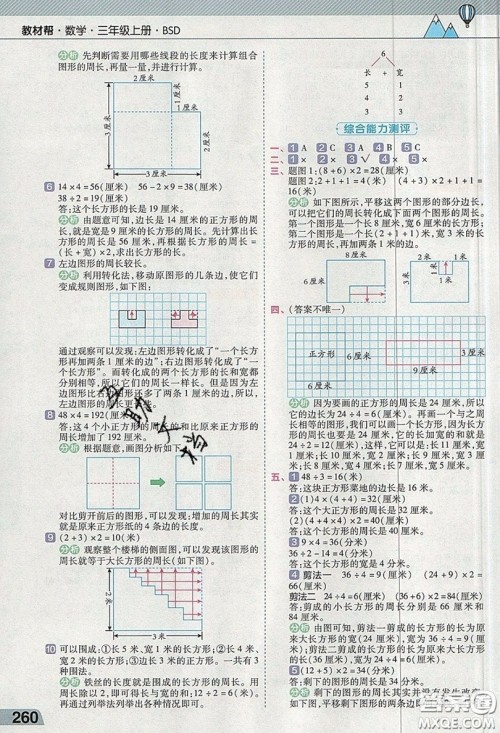 教材帮·数学·三年级上册·BSD
分析 先判断需要用哪些线段的长度来计算组合
图形的周长,再量一量,并进行计算。
2厘米
1厘米
2厘米
3厘米
6 14×4=56(厘米) 56-2×9=38(厘米)
38÷2=19(厘米)
答:这个长方形的长是19厘米。
分析 由题意可知,边长是14厘米的正方形的周
长,就是宽是9厘米的长方形的周长。先计算出长
方形的周长是56厘米,再根据长方形的周长=
(长+宽)×2,求出长方形的长。
7 左边图形的周长较长。
分析 利用转化法,移动原图形的几条边,使它们
变成规则图形,如下图:
通过观察可以发现:左边图形转化成了“一个长方
形再加两条1厘米的边”;右边图形转化成了“一个
长方形”。而转化成的两个长方形的长和宽都
分别相等,所以它们的周长一样长。但是因为左边
图形比右边图形还多了两条1厘米的边,所以,
左边图形的周长更长些。
8 48×4=192(厘米)
答:这4个小正方形的周长的和比原来正方形的
周长增加了192厘米。
分析 根据题意,画图分析如下:
对比剪开前后的图形,可以发现:增加的周长其实
就是原来正方形纸的4条边的长度。
9 (2+3)×2=10(米)
分析 观察整个楼梯的侧面图,可以发现该图形的
周长就等于大长方形的周长(如下图)。
2米
3米
10 可以围成:①长5米,宽1米的长方形;②长4米,
宽2米的长方形;③边长3米的正方形。一共有3
种围法。
分析 铁丝的长度就是围成的长方形的周长。用
周长除以2,即可得到长与宽的和是6米。再
通过列举法列举出各种情况,如下:
260
6
长 + 宽
5 1
4 2
3 3
综合能力测评
一、1 A 2 C 3 A 4 B 5 C
二、1 × 2 × 3 √ 4 × 5 ×
三、题图1:(8+6)×2=28(厘米)
题图2:4×3+1×2+1+1=16(米) (4+3)×2+1+1=
16(米)
分析 如下图所示,平移这两个图形的部分边长,
可以把它们的周长转化成下面两个图形的周长。
第一个图形是一个长8厘米、宽6厘米的长方形;
第二个图形是一个长4米、宽3米的长方形
的周长,再加两条1米的边。
8厘米
6厘米
1米
1米
3米
4米
四、(答案不唯一)
正方形
6厘米
6厘米
9厘米
3厘米
分析 因为要画的正方形的周长是24厘米,所以
它的边长为24÷4=6(厘米)。因为要画的长方形
的周长是24厘米,所以,它的长加宽的和就是
24÷2=12(厘米),这样,它可以是:长11厘米、宽
1厘米;长10厘米、宽2厘米;长9厘米、宽3厘
米;长8厘米、宽4厘米;长7厘米、宽5厘米。
五、1 48÷3=16(米)
答:这块正方形菜地的边长是16米。
2 (1+1)×4=8(厘米)
答:这个大正方形的周长是8厘米。
(5+4)×2=18(厘米)
答:这个大长方形的周长是18厘米。
3 9×4=36(分米)
36÷2-14=4(分米)
答:这个长方形的宽是4分米。
4 剪法一 36÷4=9(厘米) (24+9)×2=
66(厘米)
剪法二 24÷4=6(厘米) (36+6)×2=84(厘米)
答:剪成的小长方形的周长是66厘米或84厘米。
分析 由图可知,剪法一剪成的长方形的长为
原来大长方形的宽(24厘米),宽为36÷4=9(厘
米);剪法二剪成的长方形的长为原来大长方形
的长(36厘米),宽为24÷4=6(厘米)。
答:剩下的图形的周长是34厘米。